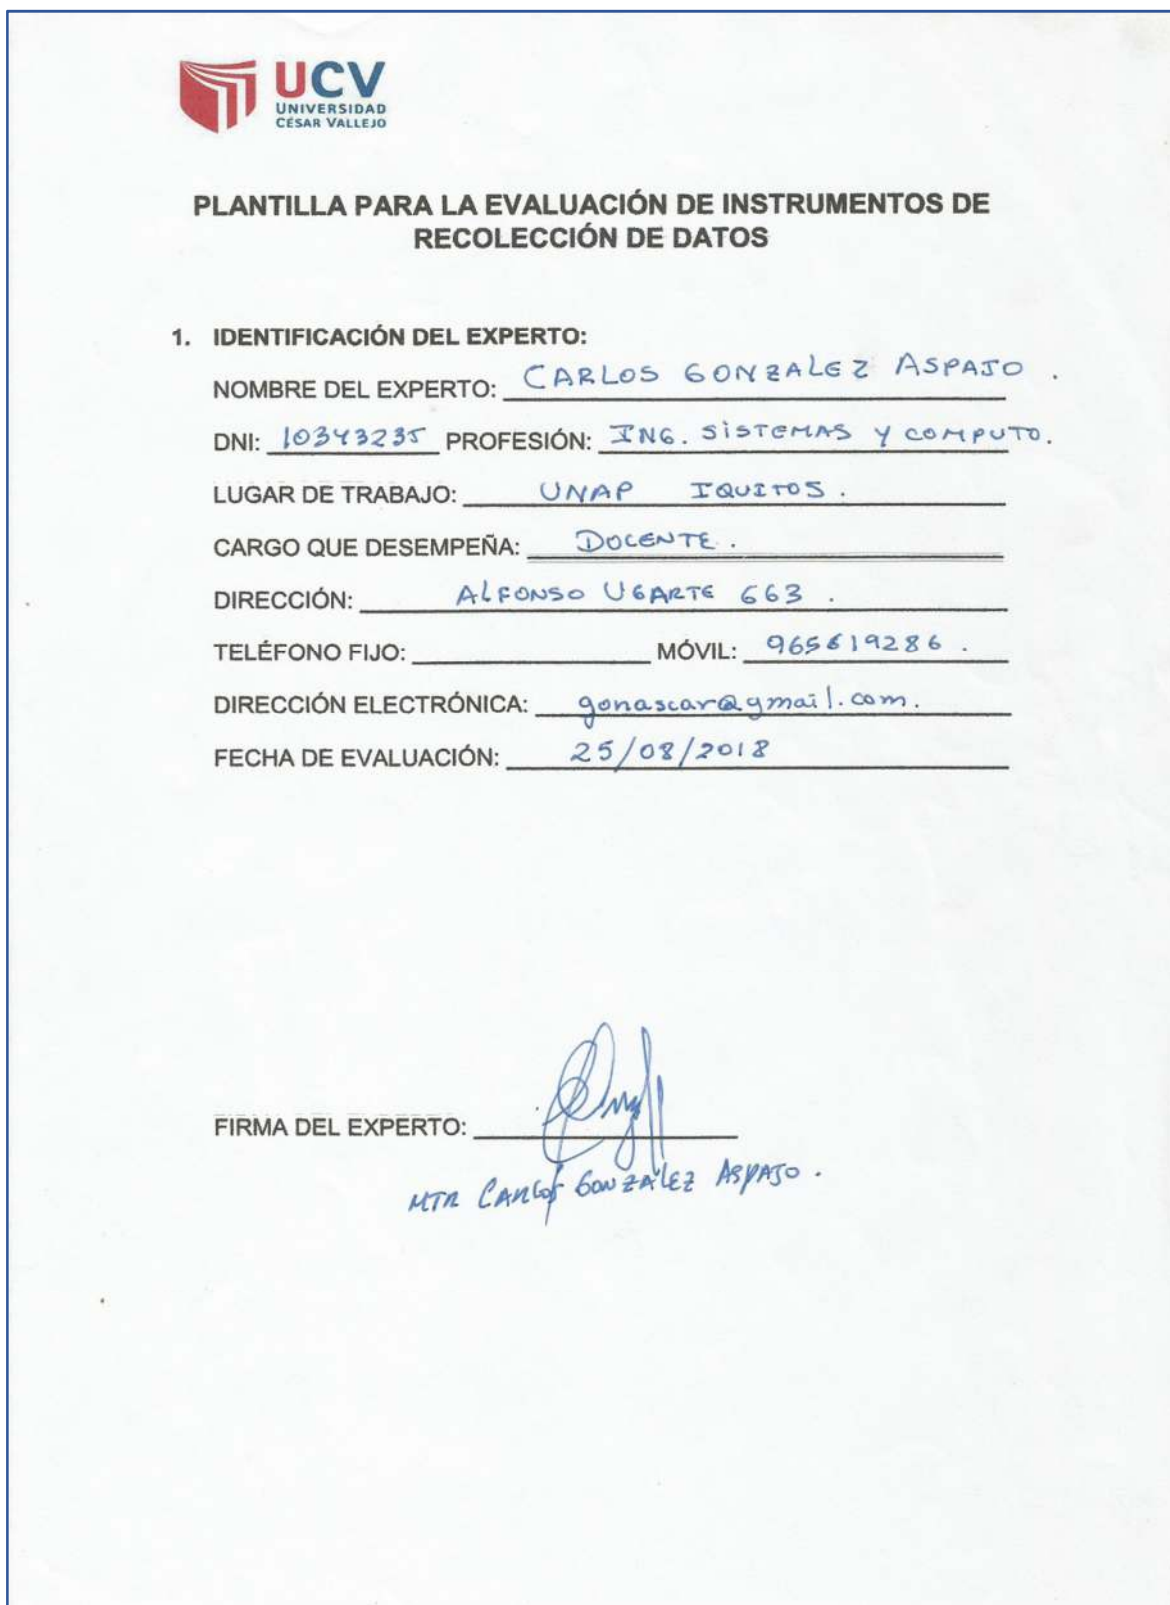 UCV
UNIVERSIDAD
CÉSAR VALLEJO
PLANTILLA PARA LA EVALUACIÓN DE INSTRUMENTOS DE
RECOLECCIÓN DE DATOS
1. IDENTIFICACIÓN DEL EXPERTO:
NOMBRE DEL EXPERTO: CARLOS GONZALEZ ASPAJO.
DNI: 10343235 PROFESIÓN: ING. SISTEMAS Y COMPUTO.
LUGAR DE TRABAJO: UNAP IQUITOS.
CARGO QUE DESEMPEÑA: DOCENTE.
DIRECCIÓN: ALFONSO UGARTE 663.
TELÉFONO FIJO: MÓVIL: 965619286.
DIRECCIÓN ELECTRÓNICA: gonascar@gmail.com.
FECHA DE EVALUACIÓN: 25/08/2018
FIRMA DEL EXPERTO:
MTR CARLOS GONZALEZ ASPAJO.